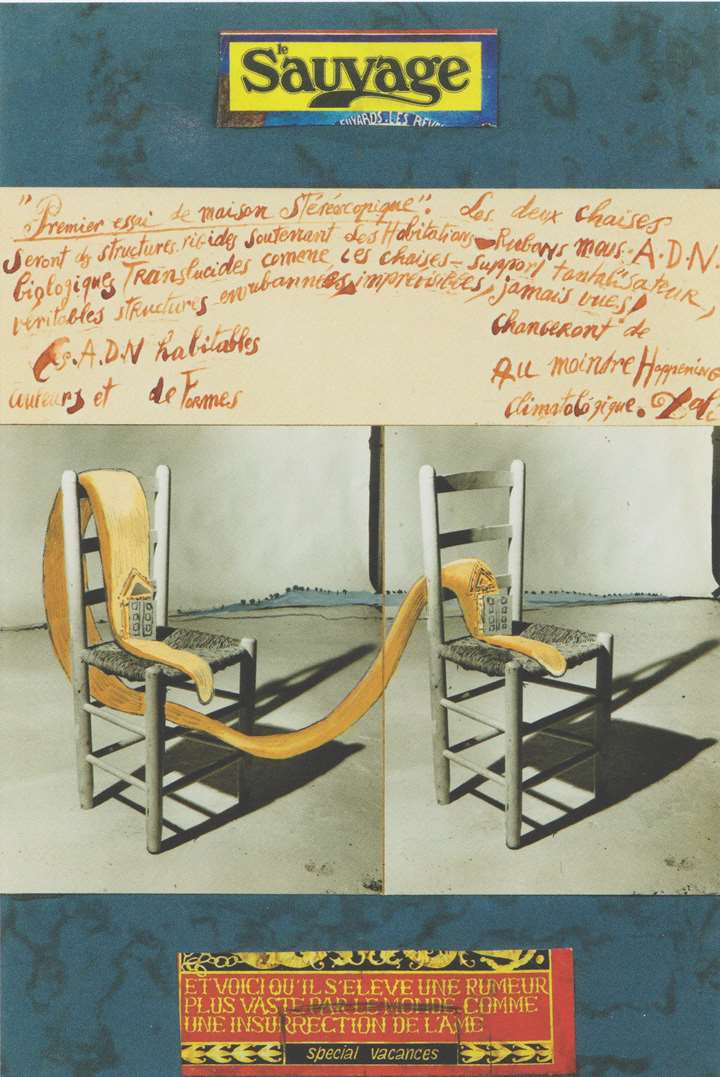 le
Sauvage
FUYARDS. LES REVE
"Premier essai de maison Stéréscopique". Les deux chaises
Seront ds structures rigides soutenant des Habitations - Rubans mous. A.D.N.
biologiques Translucides comme les chaises - support tantalisateur,
véritables structures enrubannées, imprevisibles, jamais vues!
Les. A.D.N habitables
changeront de
couleurs et de Formes
Au moindre Happening
climatologique. Dalí
ET VOICI QU'IL S'ELEVE UNE RUMEUR
PLUS VASTE PAR LE MONDE COMME
UNE INSURRECTION DE L'AME
special vacances